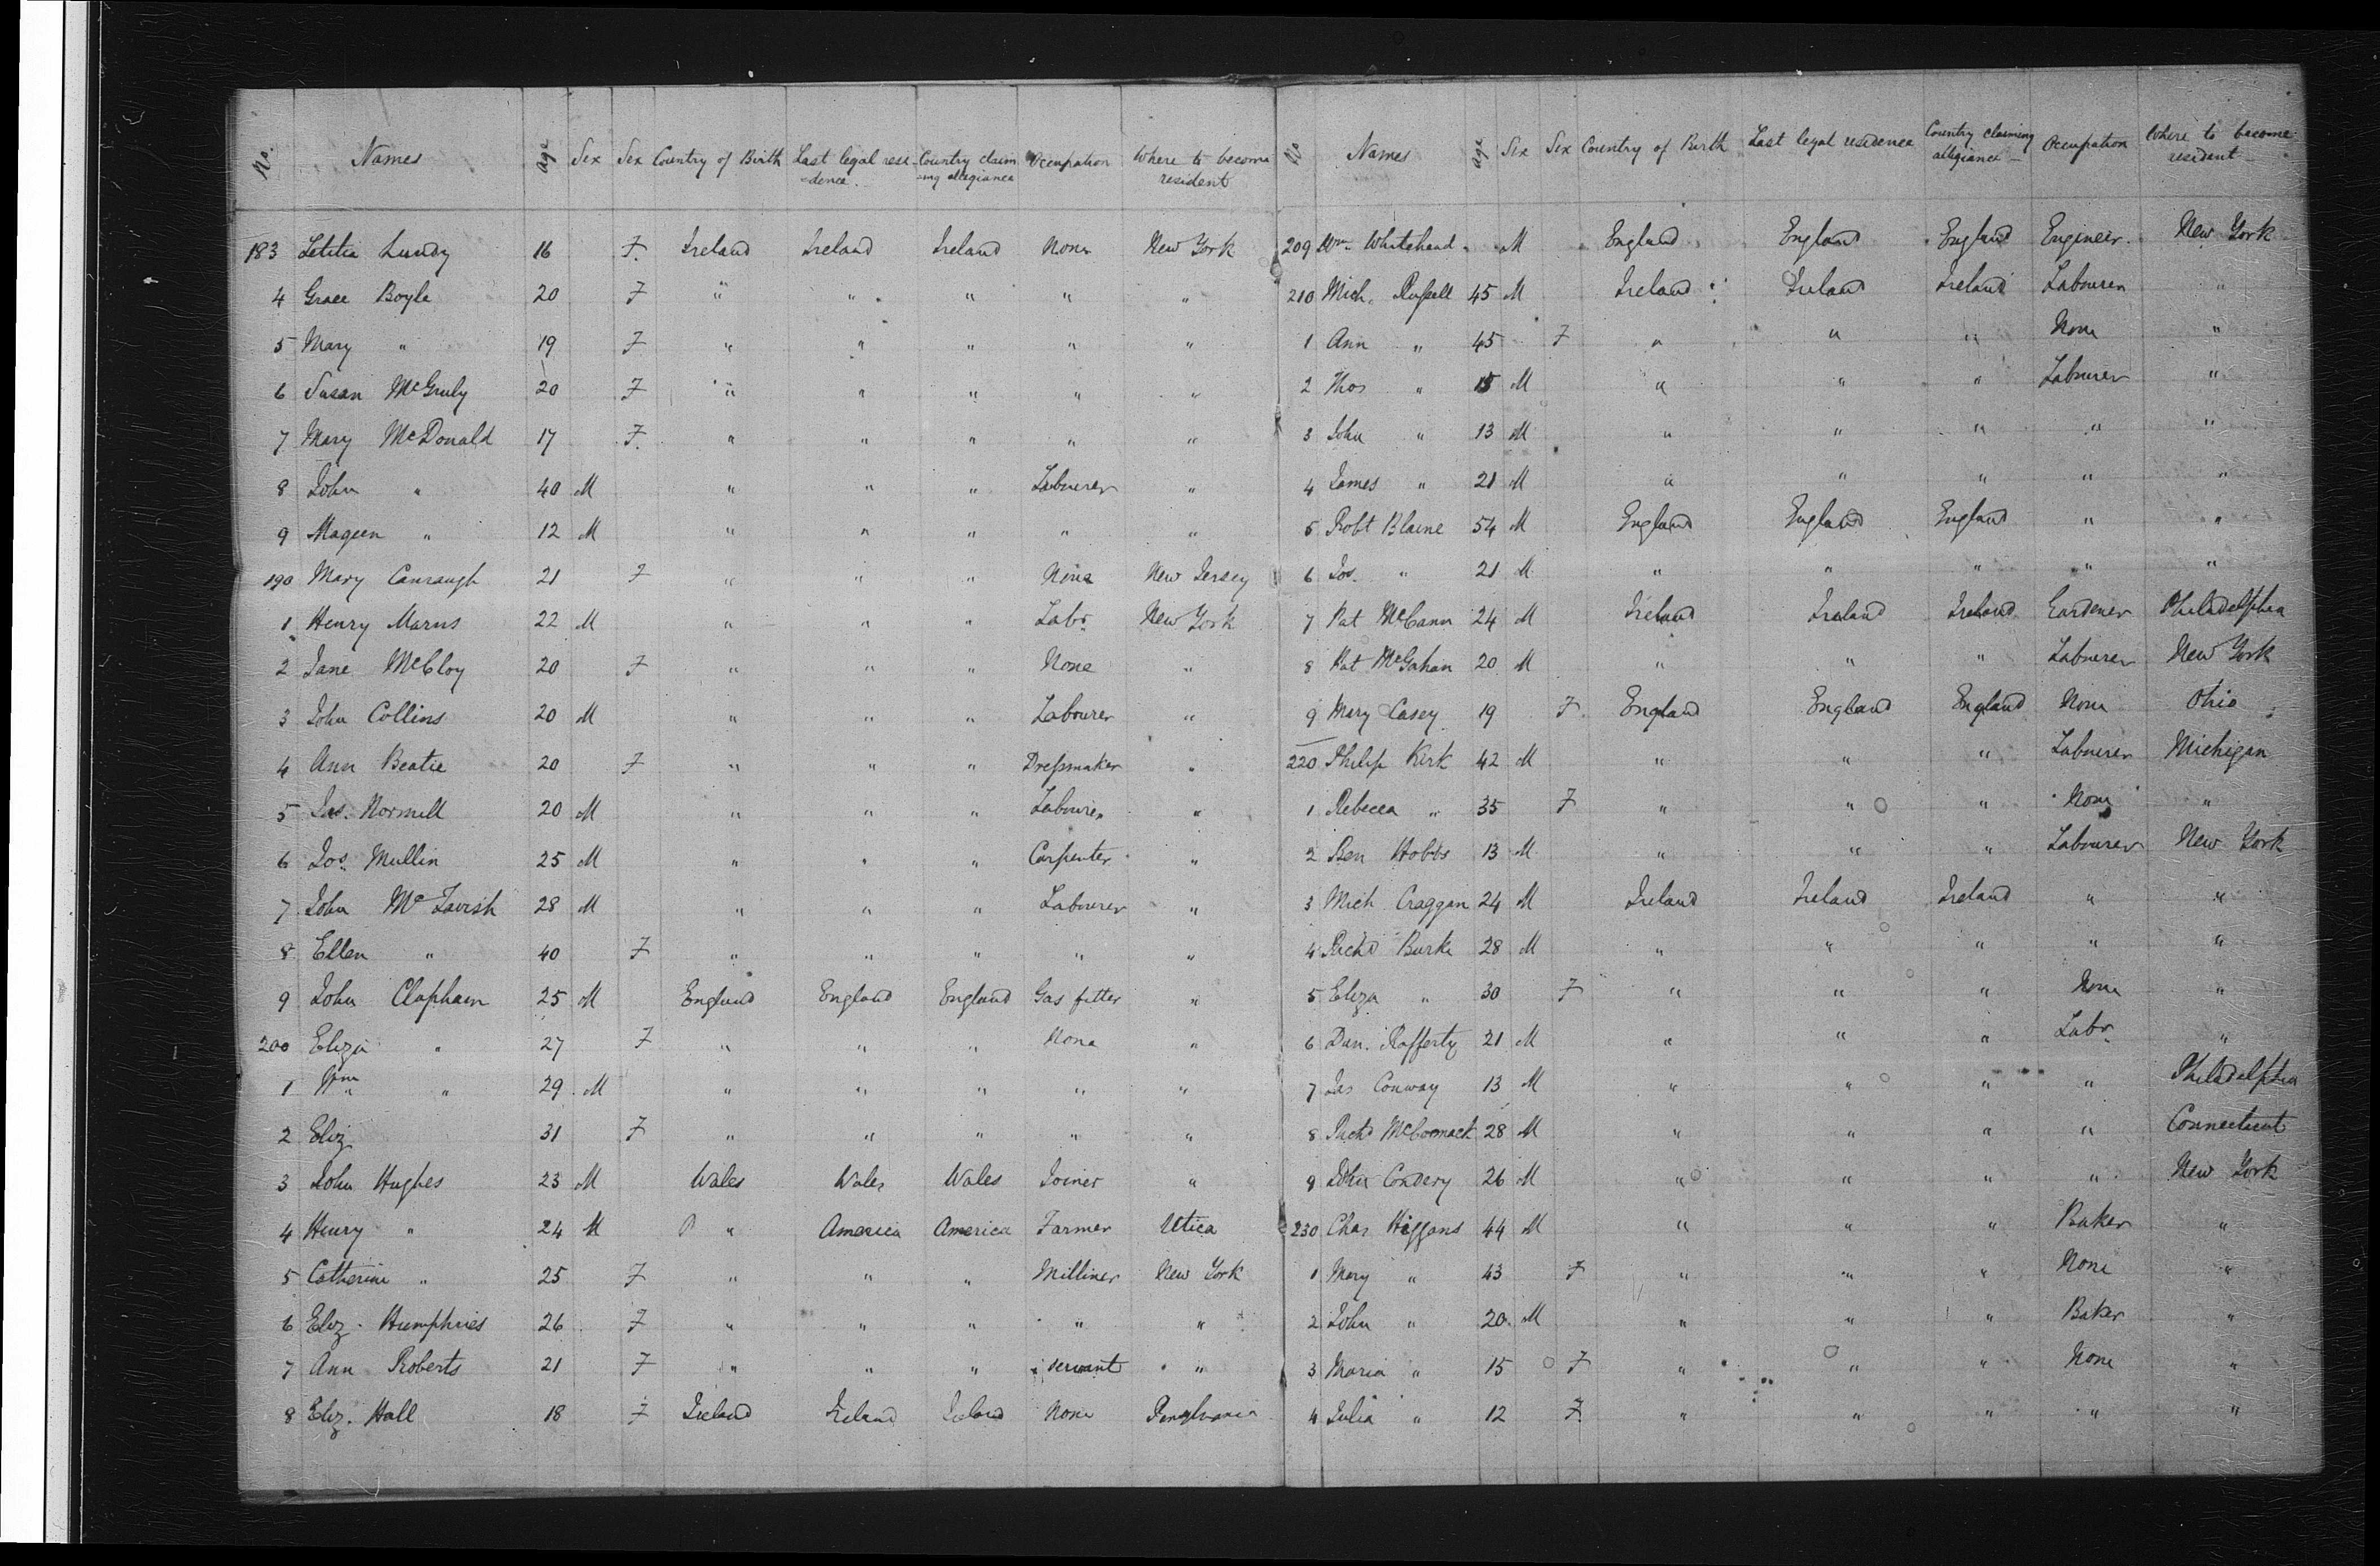 No. Names Age Sex Sex Country of Birth Last legal resi-dence. Country claim-ing allegiance Occupation Where to become resident
183 Letitia Lundy 16 F. Ireland Ireland Ireland None New York
4 Grace Boyle 20 F " " " " "
5 Mary " 19 F " " " " "
6 Susan 20 F " " " " "
7 Mary McDonald 17 F. " " " " "
8 John " 40 M " " " Labourer "
9 Mageen " 12 M " " " " "
190 Mary Canraugh 21 F " " " None New Jersey
1 Henry Marns 22 M " " " Labr New York
2 Jane McCloy 20 F " " " None "
3 John Collins 20 M " " " Labourer "
4 Ann Beatie 20 F " " " Dressmaker "
5 Jas. Normell 20 M " " " Labourer "
6 Jos. Mullin 25 M " " " Carpenter "
7 John McTavish 28 M " " " Labourer "
8 Ellen " 40 F " " " " "
9 John Clapham 25 M England England England Gas fitter "
200 Eliza " 27 F " " " None "
1 Wm " 29 M " " " " "
2 Eliz 31 F " " " " "
3 John Hughes 23 M Wales Wales Wales Joiner "
4 Henry " 24 M " America America Farmer Utica
5 Catherine " 25 F " " " Milliner New York
6 Eliz. Humphries 26 F " " " " "
7 Ann Roberts 21 F " " " servant "
8 Eliz. Hall 18 F Ireland Ireland Ireland None Pensylvania
No Names Age Sex Sex Country of Birth Last legal residence Country claiming allegiance Occupation Where to become resident
209 Wm Whitehead M England England England Engineer. New York
210 Mich. Russell 45 M Ireland Ireland Ireland Labourer "
1 Ann " 45 F " " " None "
2 Thos " 15 M " " " Labourer "
3 John " 13 M " " " " "
4 James " 21 M " " " " "
5 Robt Blaine 54 M England England England " "
6 Jos. " 21 M " " " " "
7 Pat McCann 24 M Ireland Ireland Ireland Gardener Philadelphia
8 Pat McGahan 20 M " " " Labourer New York
9 Mary Casey 19 F. England England England None Ohio
220 Philip Kirk 42 M " " " Labourer Michigan
1 Rebecca " 35 F " " " None "
2 Ben Hobbs 13 M " " " Labourer New York
3 Mich Craggan 24 M Ireland Ireland Ireland " "
4 Richd Burke 28 M " " " " "
5 Eliza " 30 F " " " None "
6 Dan. Rafferty 21 M " " " Labr "
7 Jas Conway 13 M " " " " Philadelphia
8 Richd McCormack 28 M " " " " Connecticut
9 John Condery 26 M " " " " New York
230 Chas Higgans 44 M " " " Baker "
1 Mary " 43 F " " " None "
2 John " 20 M " " " Baker "
3 Maria " 15 F " " " None "
4 Julia " 12 F. " " " " "